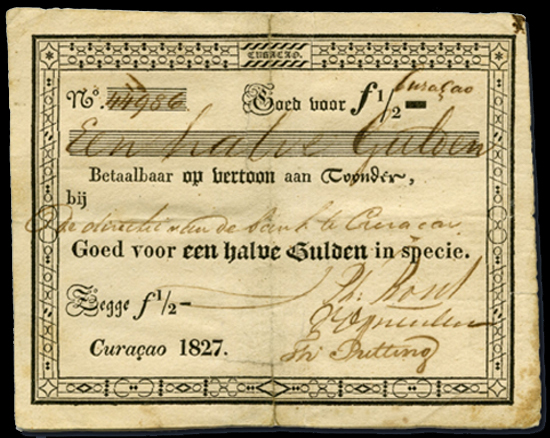 CURAÇAO.
Nº
Goed voor ƒ 1/2 — Curaçao
Een halve Gulden
Betaalbaar op vertoon aan Toonder,
bij
De directie van de bank te Curacao
Goed voor een halve Gulden in specie.
Zegge ƒ 1/2 —
Curaçao 1827.